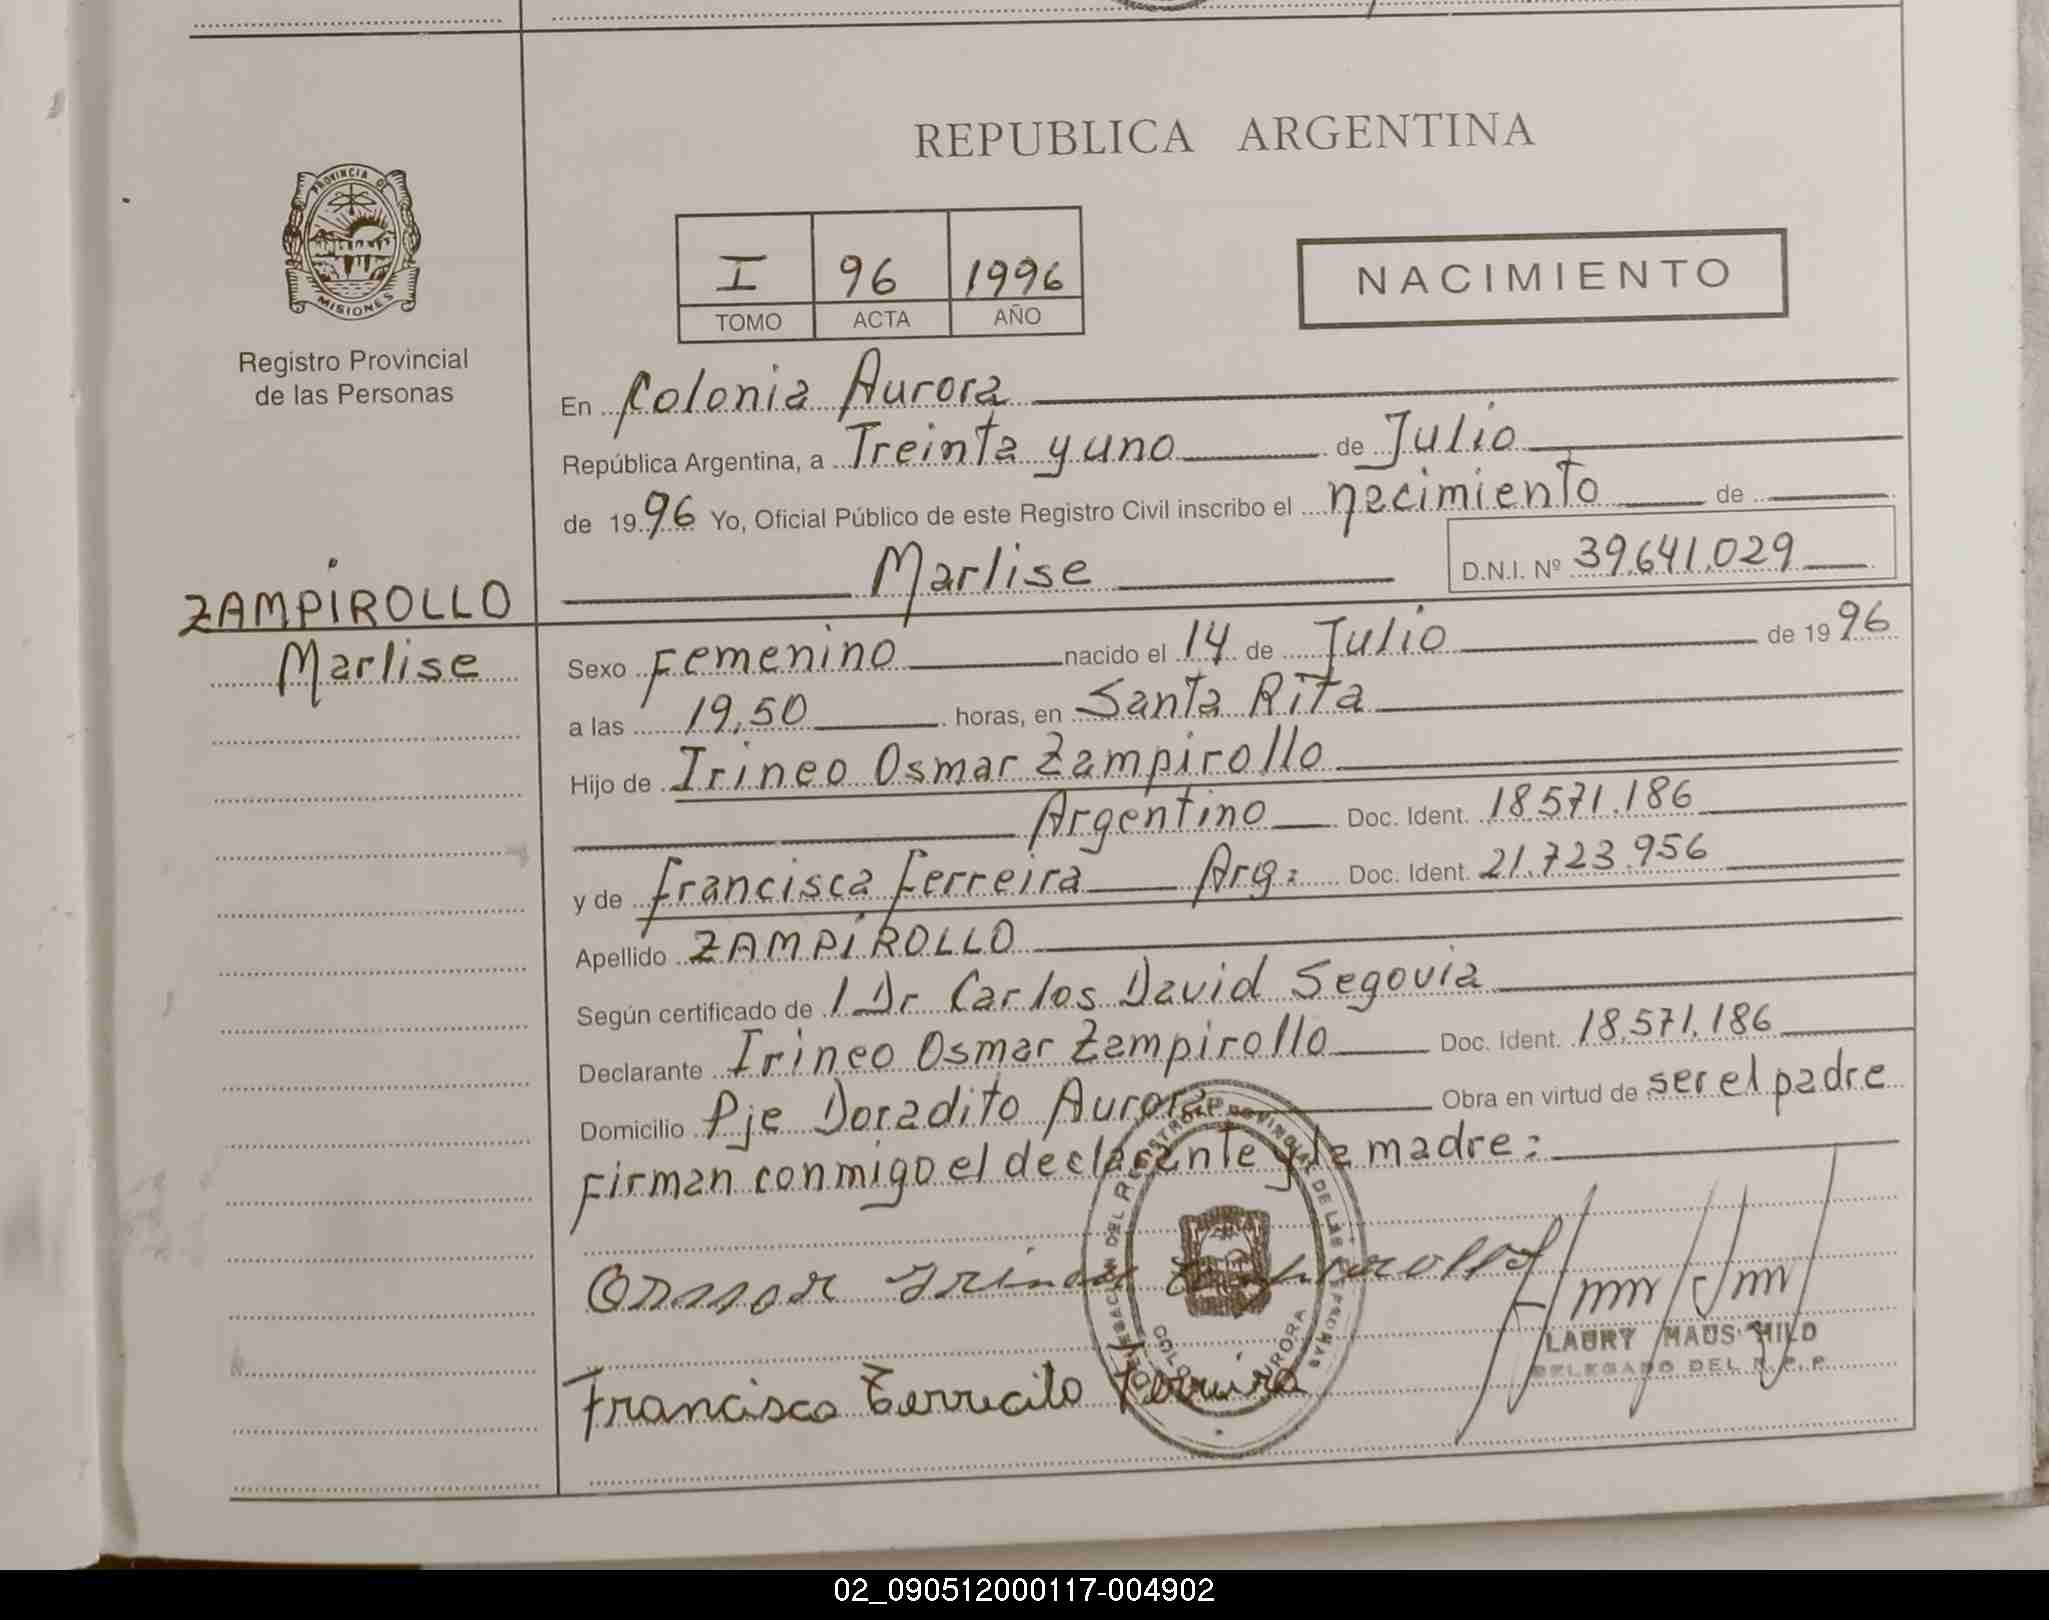 REPUBLICA ARGENTINA
PROVINCIA DE
MISIONES
Registro Provincial
de las Personas
I 96 1996
TOMO ACTA AÑO
NACIMIENTO
En Colonia Aurora
República Argentina, a Treinta y uno de Julio
de 1996 Yo, Oficial Público de este Registro Civil inscribo el necimiento de
Marlise D.N.I. Nº 39.641.029
ZAMPIROLLO
Marlise
Sexo Femenino nacido el 14 de Julio de 1996
a las 19,50 horas, en Santa Rita
Hijo de Irineo Osmar Zampirollo
Argentino Doc. Ident. 18.571.186
y de Francisca Ferreira Arg: Doc. Ident. 21.723.956
Apellido ZAMPIROLLO
Según certificado de / Dr Carlos David Segovia
Declarante Irineo Osmar Zampirollo Doc. Ident. 18.571.186
Domicilio Pje Doradito Aurora Obra en virtud de ser el padre
Firman conmigo el declarante y la madre:
DELEGACION DEL REGISTRO PROVINCIAL DE LAS PERSONAS
COLONIA AURORA
LAURY MAUS HILD
DELEGADO DEL R.P.P.
02_090512000117-004902